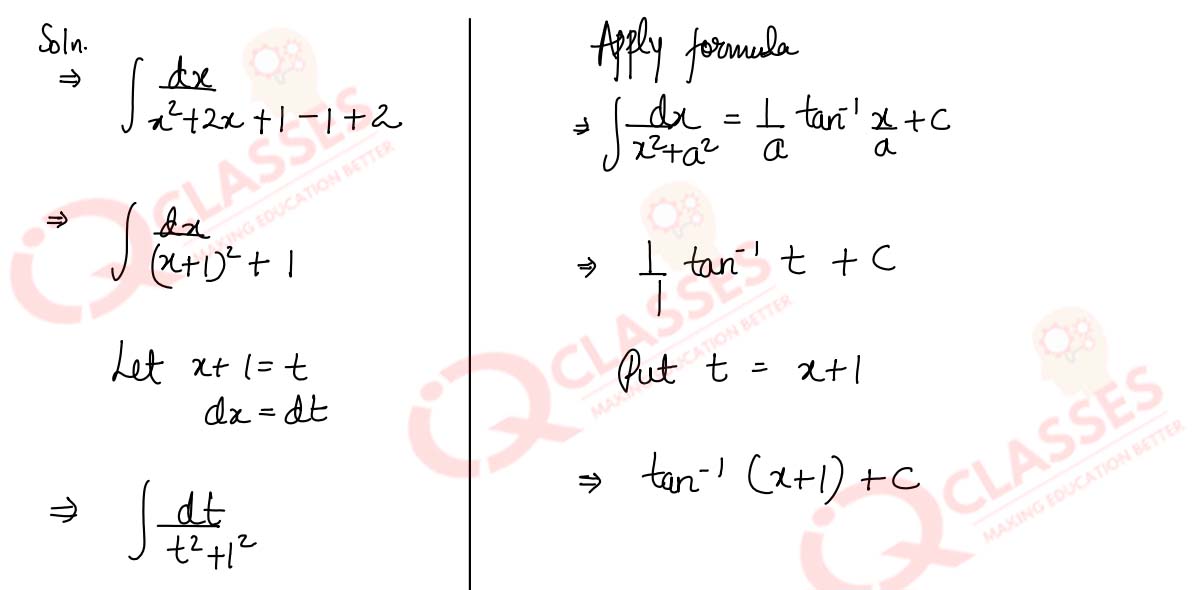 Soln.
⇒ ∫ dx / x²+2x+1-1+2
⇒ ∫ dx / (x+1)² + 1
Let x+1=t
dx=dt
⇒ ∫ dt / t²+1²
Apply formula
⇒ ∫ dx / x²+a² = 1/a tan⁻¹ x/a + C
⇒ 1/1 tan⁻¹ t + C
Put t = x+1
⇒ tan⁻¹ (x+1) + C
iQ CLASSES
MAKING EDUCATION BETTER
iQ CLASSES
MAKING EDUCATION BETTER
iQ CLASSES
MAKING EDUCATION BETTER